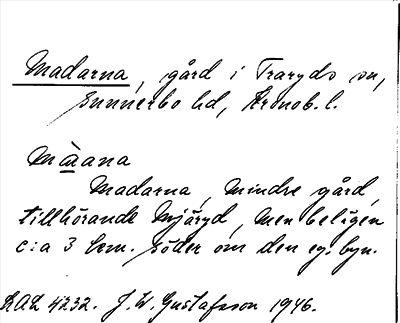 Madarna, gård i Traryds sn,
Sunnerbo hd, Kronob. l.
Màana
Madarna, mindre gård,
tillhörande Mjäryd, men belägen
c:a 3 km. söder om den eg. byn.
ULL 4232. J. W. Gustafsson 1946.